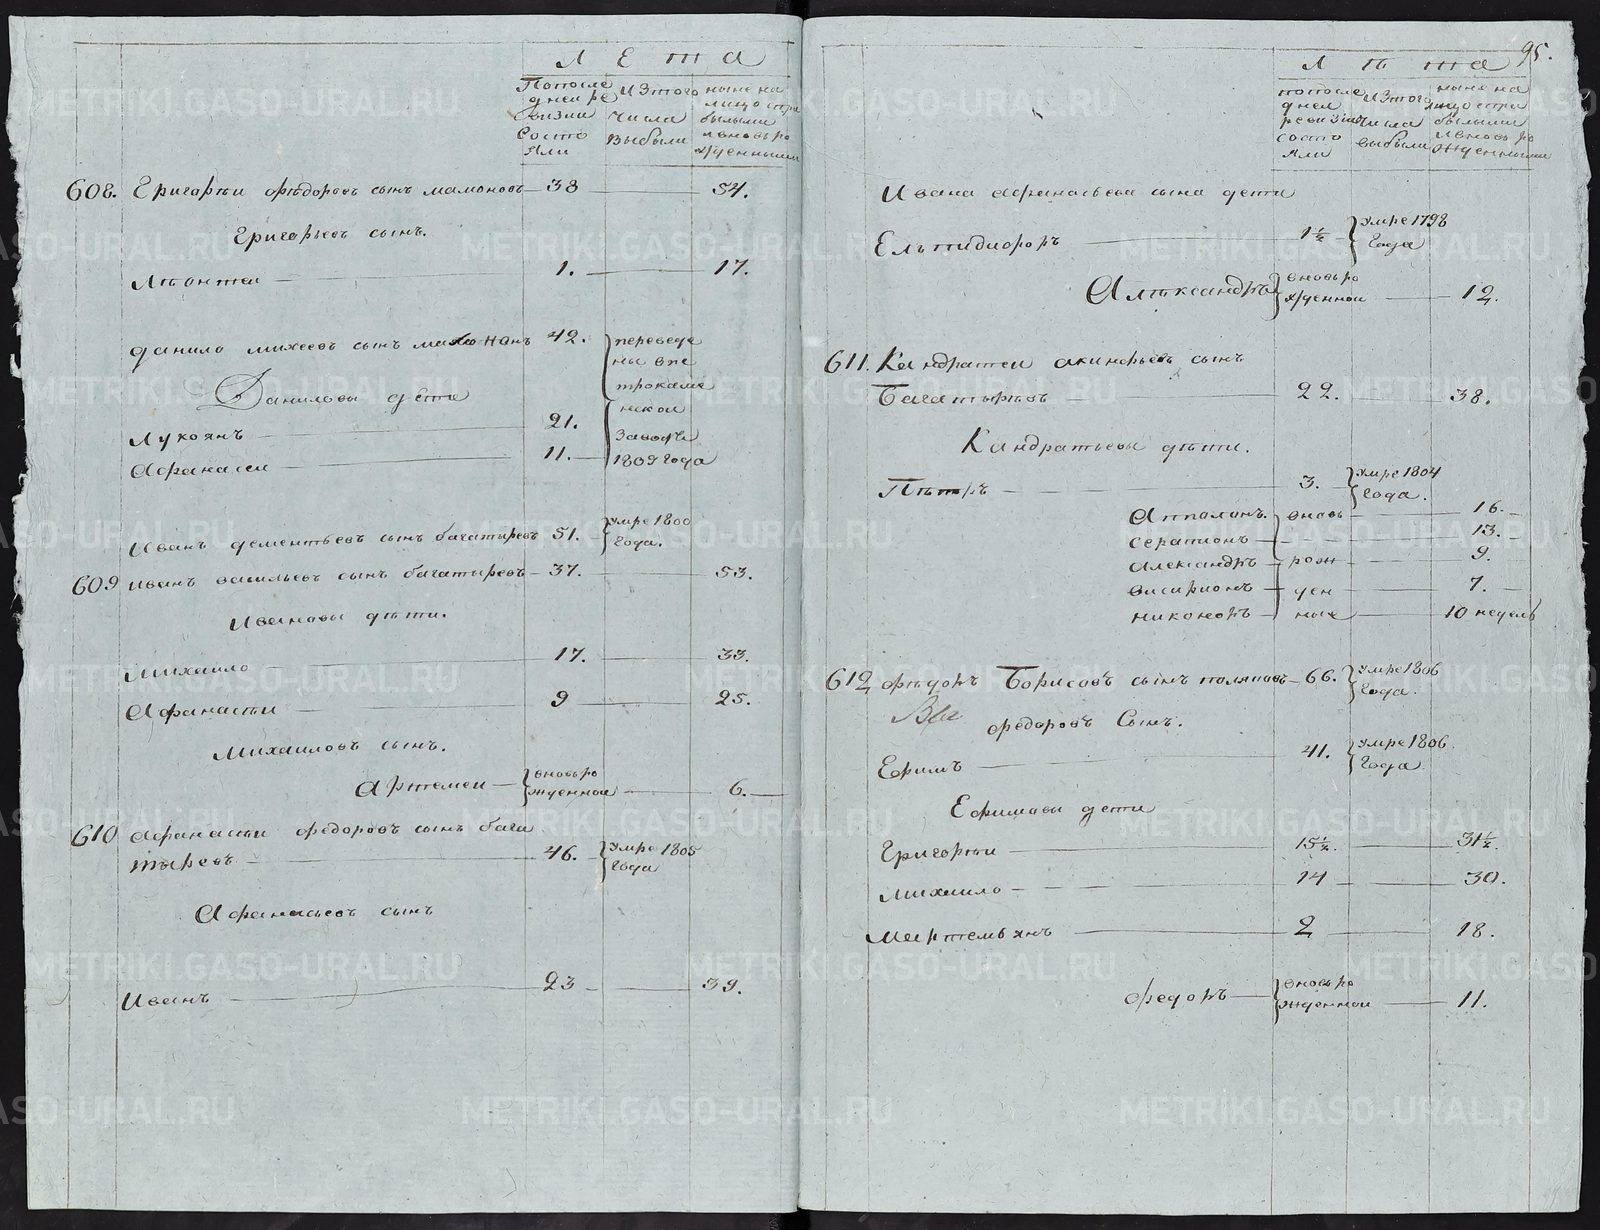 Л Е т а
Попосле
дней ре
визии
состо
яли
И Этого
числа
выбыли
ныне на
лицо с при
былыми
и вновь ро
жденными
608. Григореи фѣдоровъ сынъ мамоновъ 38 54.
Григорьевъ сынъ.
Лѣонтеи 1. 17.
данило михеевъ сынъ 42.
переведе
ны в пе
трокаме
нскои
заводъ
1809 года
Даниловы дети
Лукоянъ 21.
Афанасеи 11.
Иванъ дементьевъ сынъ багатыревъ 51. умре 1800
года.
609 иванъ васильевъ сынъ багатыревъ 37. 53.
Ивановы дѣти.
Михаило 17. 33.
Афанасеи 9 25.
Михаиловъ сынъ.
Артемеи вновь ро
жденнои 6.
610 Афанасеи федоровъ сынъ бага
тыревъ 46. умре 1805
года
Афанасьевъ сынъ
Иванъ 23 39.
95.
Л ѣ т а
попосле
дней
ревизии
состо
яли
И Этого
числа
выбыли
ныне на
лицо с при
былыми
и вновь ро
жденными
Ивана афанасьева сына дети
Ельпидифоръ 1½ умре 1798
года
Алѣксандръ вновь ро
жденнои 12.
611. Кандратеи акинфьевъ сынъ
Багатыревъ 22. 38.
Кандратьевы дѣти.
Пѣтръ 3. умре 1804
года.
Апполонъ. вновь 16.
серапионъ 13.
Александръ рож 9.
висирионъ ден 7.
никоноръ ные 10 недель
612 фѣдоръ Борисовъ сынъ поляковъ 66. умре 1806
года.
федоровъ Сынъ.
Ефимъ 41. умре 1806.
года.
Ефимовы дети
Григореи 15½. 31½.
михаило 14 30.
Мартемьянъ 2 18.
федоръ вновь ро
жденнои 11.
METRIKI.GASO-URAL.RU